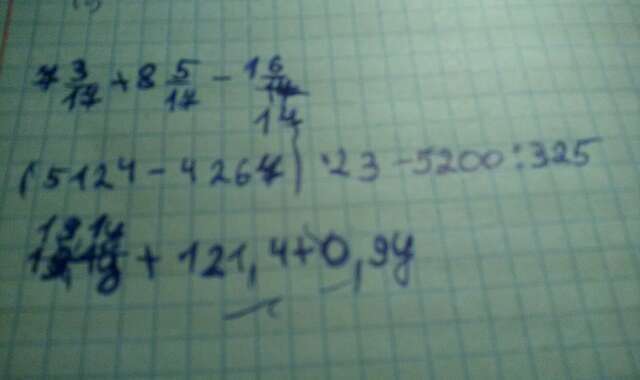 7 3/17 + 8 5/17 - 1 6/14
(5124 - 4264) · 23 - 5200 : 325
19,1y + 121,4 + 0,9y